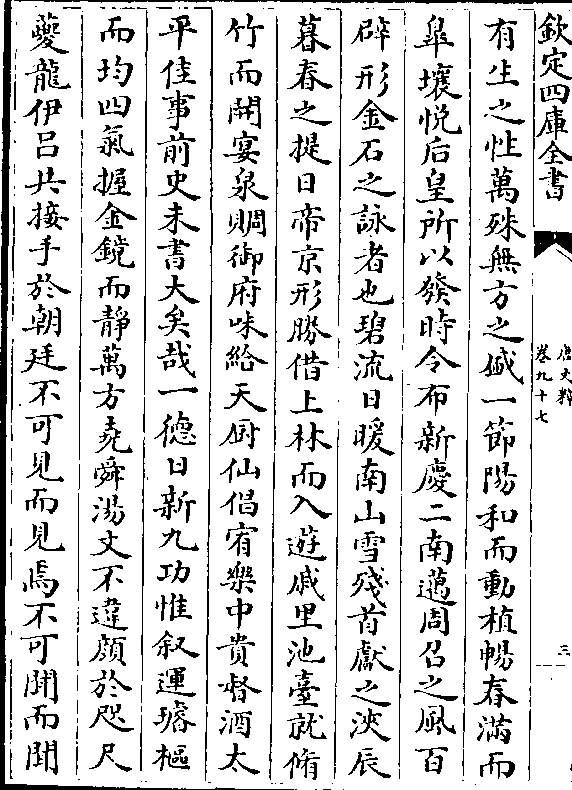 欽定四庫全書
唐文粹
卷九十七
三
有生之性萬殊無方之感一節陽和而動植暢春滿而
臯壤悦后皇所以發時令布新慶二南邁周召之風百
辟形金石之詠者也碧流日暖南山雪殘首獻之浹辰
暮春之提日帝京形勝借上林而入遊戚里池臺就脩
竹而開宴泉賜御府味給天厨仙倡宥樂中貴督酒太
平佳事前史未書大矣哉一德日新九功惟叙運璿樞
而均四氣握金鏡而靜萬方堯舜湯文不違顔於咫尺
夔龍伊吕共接手於朝廷不可見而見焉不可聞而聞